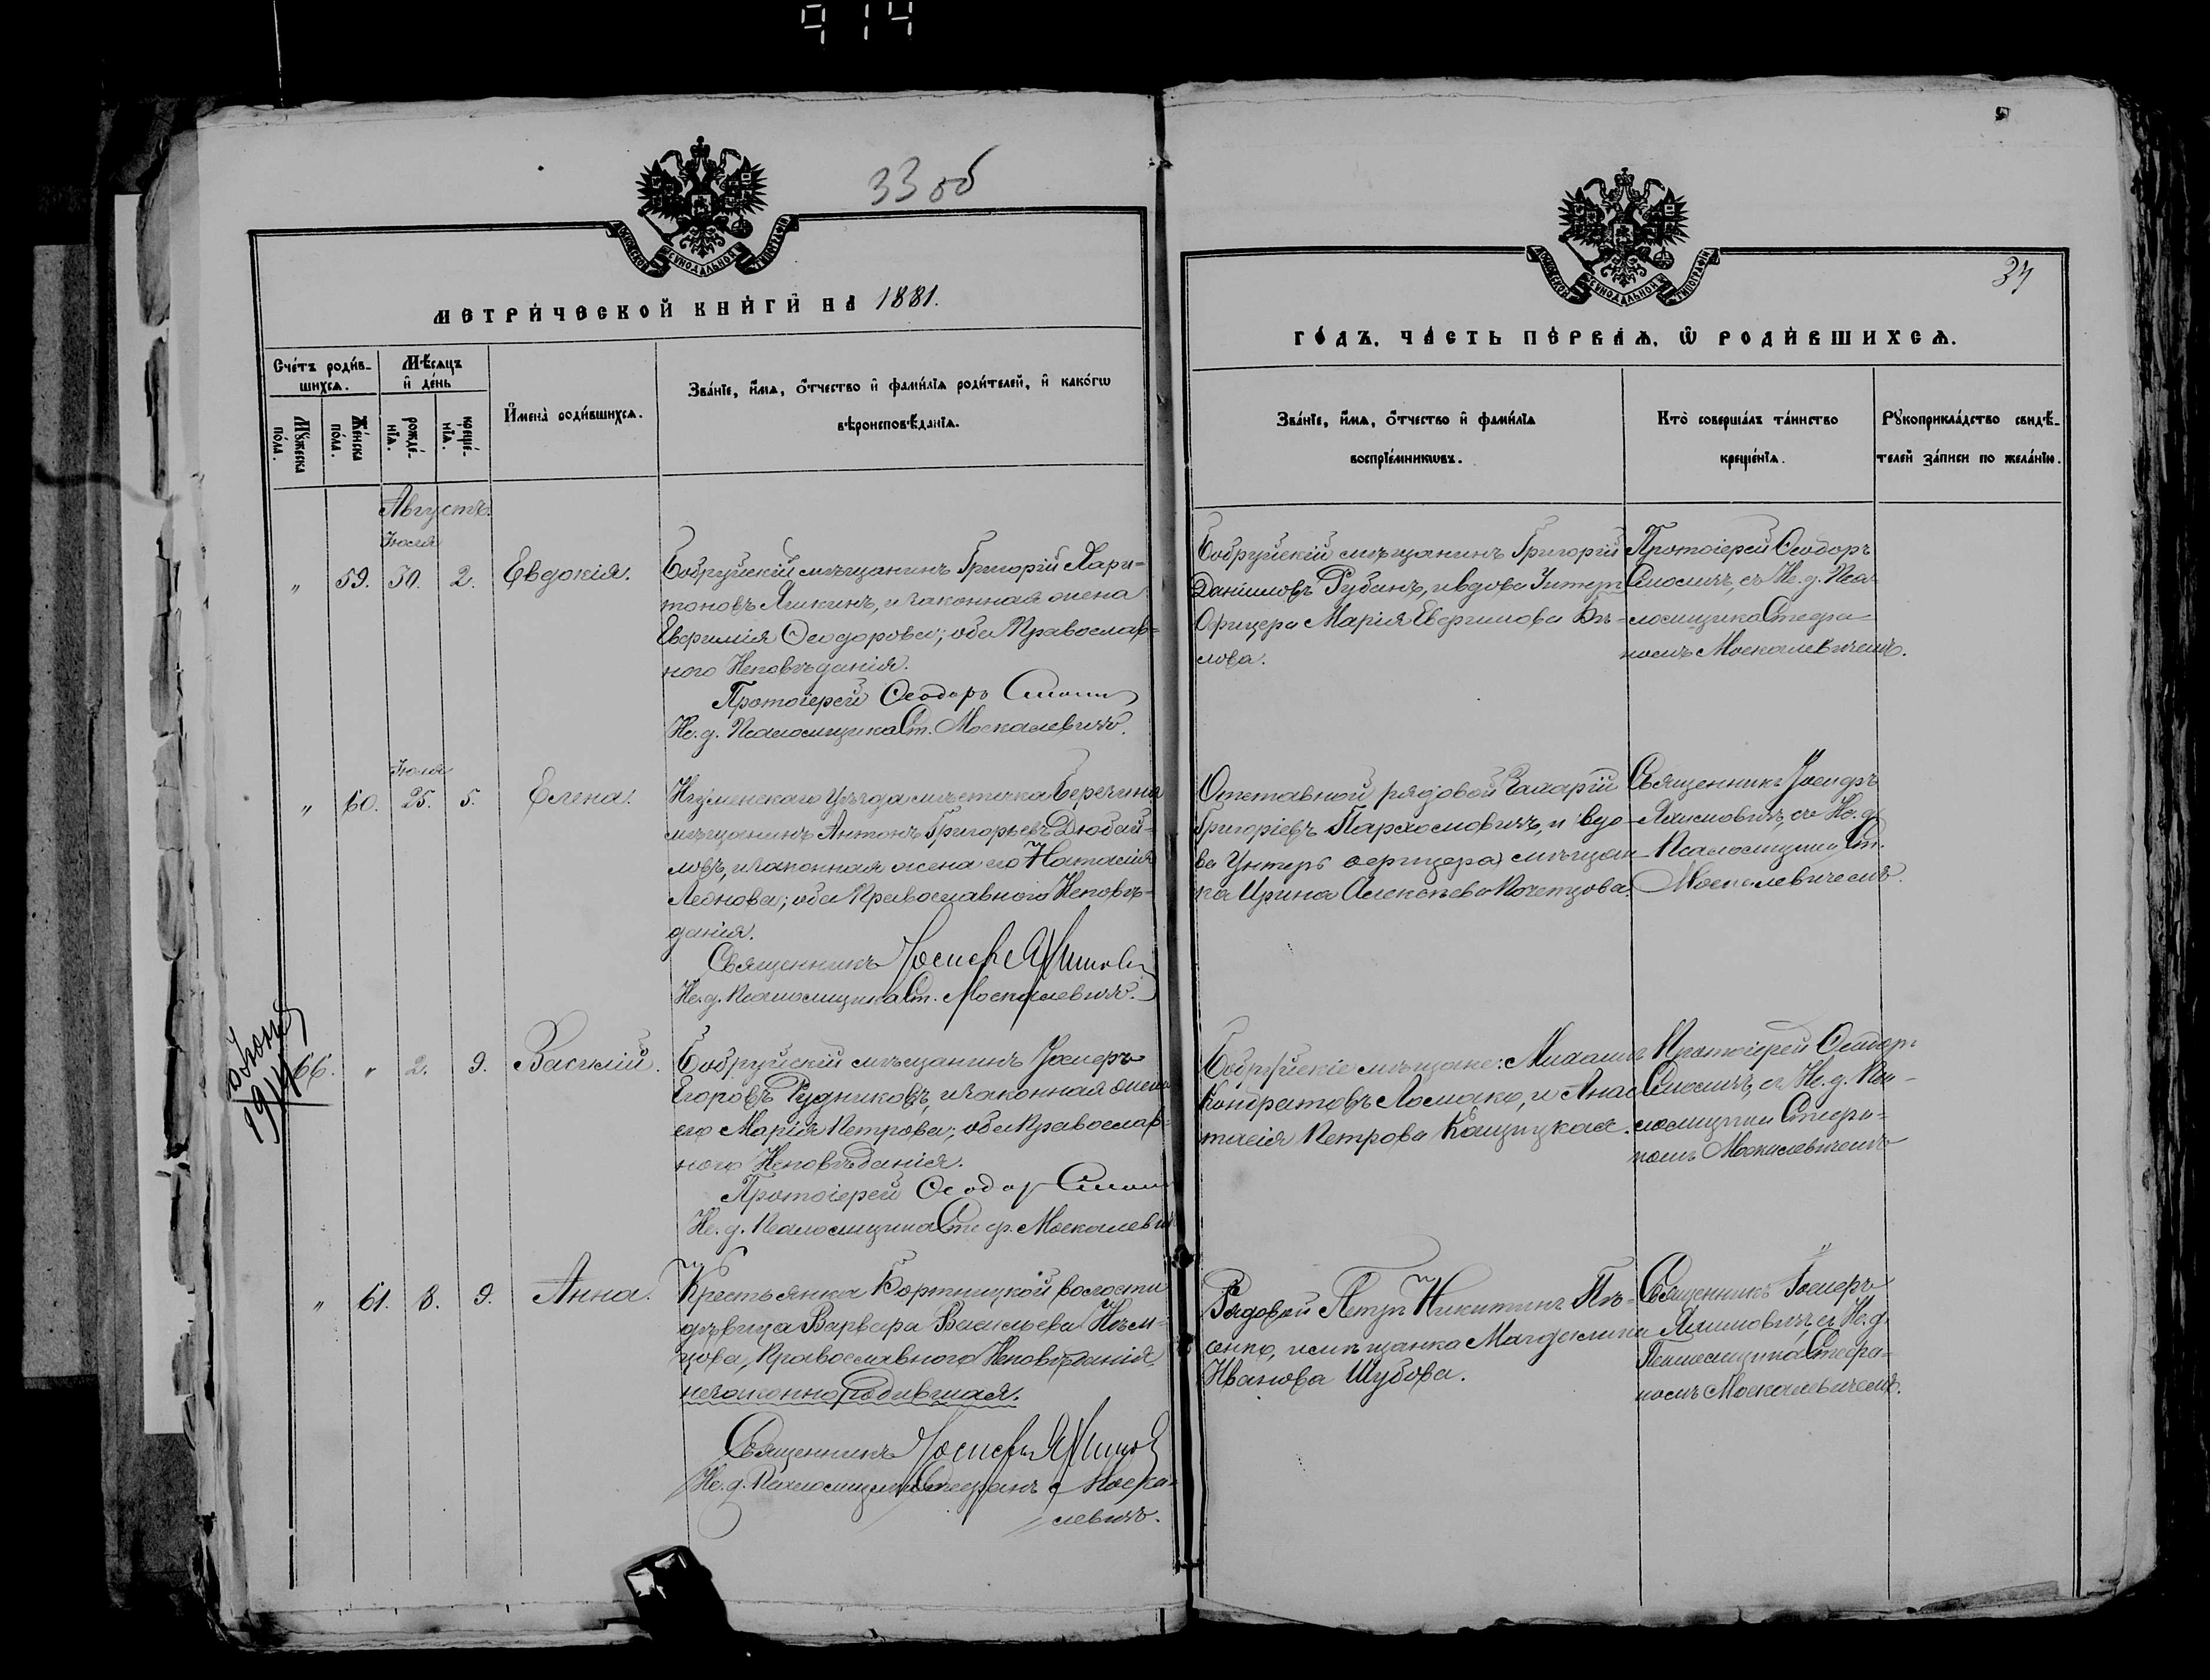 914
33 об
МОСКОВСКОЙ СѴНОДАЛЬНОЙ ТИПОГРАФІИ
МЕТРИ́ЧЕСКОЙ КНИ́ГИ НА 1881.
Сче́тъ роди́в-
шихсѧ.
Мѣ́сѧцъ
и де́нь
Мꙋ́жеска
по́ла.
Же́нска
по́ла.
рожде́-
нїѧ.
креще́-
нїѧ.
Имена̀ роди́вшихсѧ.
Зва́нїе, и́мѧ, о́тчество и фами́лїѧ роди́телей, и како́гѡ
вѣроисповѣ́данїѧ.
Августъ.
Іюля
„ 59. 30. 2. Евдокія.
Бобруйскій мѣщанинъ Григорій Хари-
тоновъ Ляшкинъ, и законная жена
Евфимія Ѳеодорова; оба Православ-
наго Исповѣданія.
Протоіерей Ѳеодоръ Смолич
Ис. д. Псаломщика Ст. Москалевичъ.
Іюля
„ 60. 25. 5. Елена.
Игуменскаго Уѣзда мѣстечка Березина
мѣщанинъ Антонъ Григорьевъ
и законная жена его Наталія
Леонова; оба Православнаго Исповѣ-
данія.
Священникъ Іосифъ
Ис. д. Псаломщика Ст. Москалевичъ.
1914
66. „ 2. 9. Василій.
Бобруйскій мѣщанинъ Іосифъ
Егоровъ Рудниковъ, и законная жена
его Марія Петрова; оба Православ-
наго Исповѣданія.
Протоіерей Ѳеодор Смолич
Ис. д. Псаломщика Стеф. Москалевич
„ 61. 8. 9. Анна.
Крестьянка Бортницкой волости
дѣвица Варвара Васильева Нѣм-
цова, Православнаго Исповѣданія,
незаконнорожденная.
Священникъ Іосифъ
Ис. д. Псаломщика Стефанъ Моска-
левичъ.
34
МОСКОВСКОЙ СѴНОДАЛЬНОЙ ТИПОГРАФІИ
ГО́ДЪ. ЧА́СТЬ ПЕ́РВАѦ, Ѿ РОДИ́ВШИХСѦ.
Зва́нїе, и́мѧ, о́тчество и фами́лїѧ
воспрїе́мникѡвъ.
Кто̀ соверша́лъ та́инство
креще́нїѧ.
Рꙋкоприкла́дство свидѣ́-
телей за́писи по жела́нїю.
Бобруйскій мѣщанинъ Григорій
Даніиловъ Рубанъ, и вдова Унтеръ
Офицера Марія Евфимова Бѣ-
лова.
Протоіерей Ѳеодоръ
Смоличъ, съ Ис. д. Пса-
ломщика Стефа-
номъ Москалевичемъ.
Отставной рядовой Захарій
Григоріевъ Пархомовичъ, и вдо-
ва Унтеръ офицера, мѣщан-
ка Ирина Алексѣева Кочетцова.
Священникъ Іосифъ
съ Ис. д.
Псаломщика Ст.
Москалевичемъ.
Бобруйскіе мѣщане: Михаилъ
Кондратовъ Ломако, и Анас-
тасія Петрова Кащицкая.
Протоіерей Ѳеодоръ
Смоличъ, съ Ис. д. Пса-
ломщика Стефа-
номъ Москалевичемъ
Рядовой Петръ Никитинъ Пѣ-
сенко, и мѣщанка Магдалина
Иванова Шубова.
Священникъ Іосифъ
съ Ис. д.
Псаломщика Стефа-
номъ Москалевичемъ.